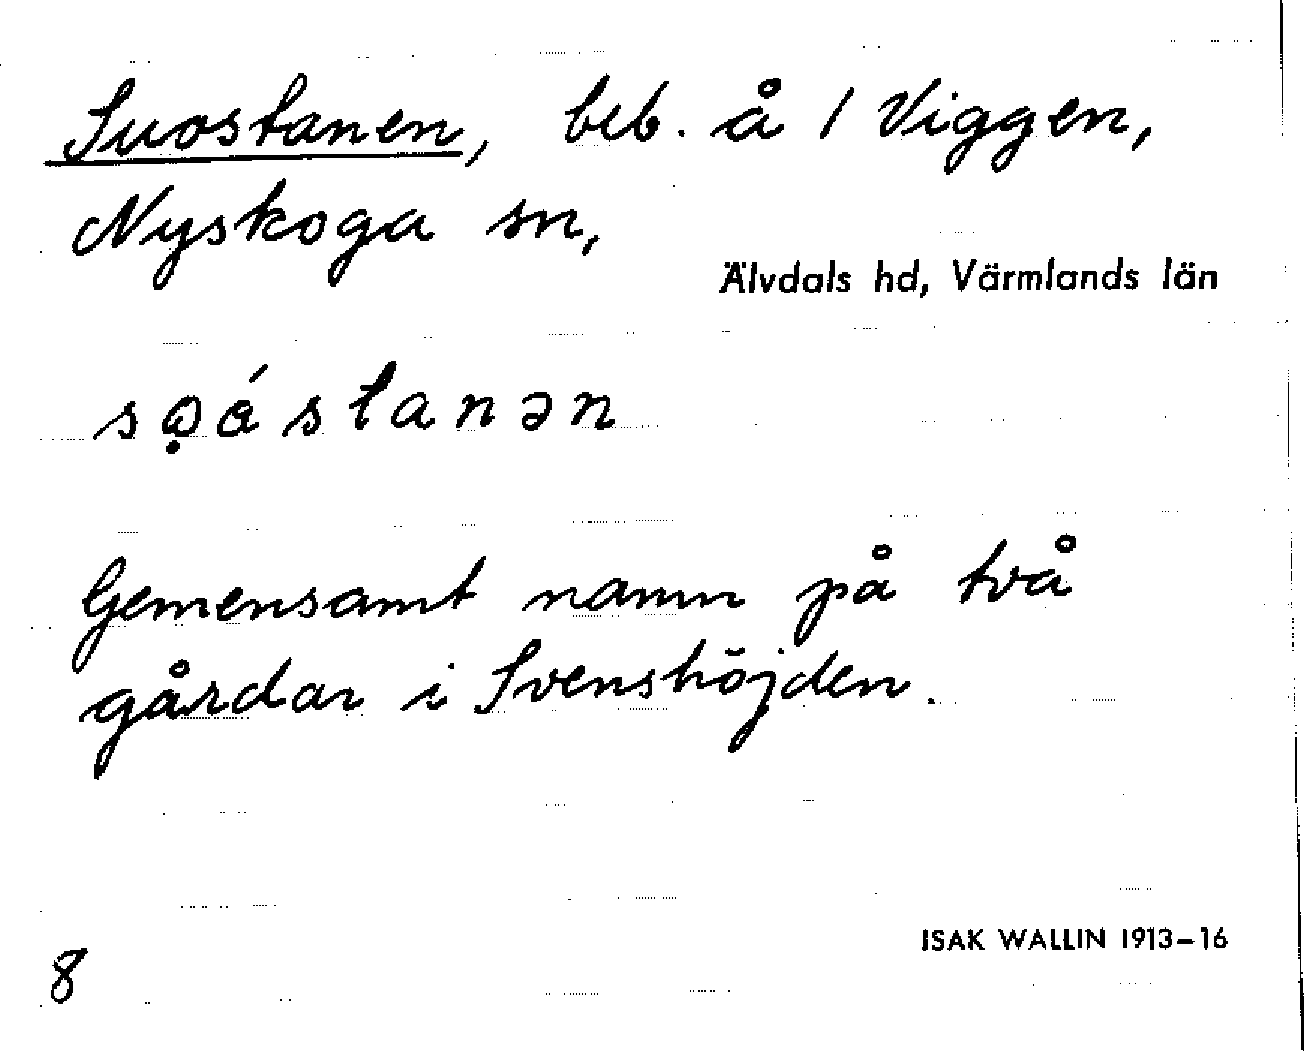 Suostanen, beb. å 1 Viggen,
Nyskoga sn,
Älvdals hd, Värmlands län
sω̣ɑ́stanən
Gemensamt namn på två
gårdar i Svenshöjden.
ISAK WALLIN 1913-16
8